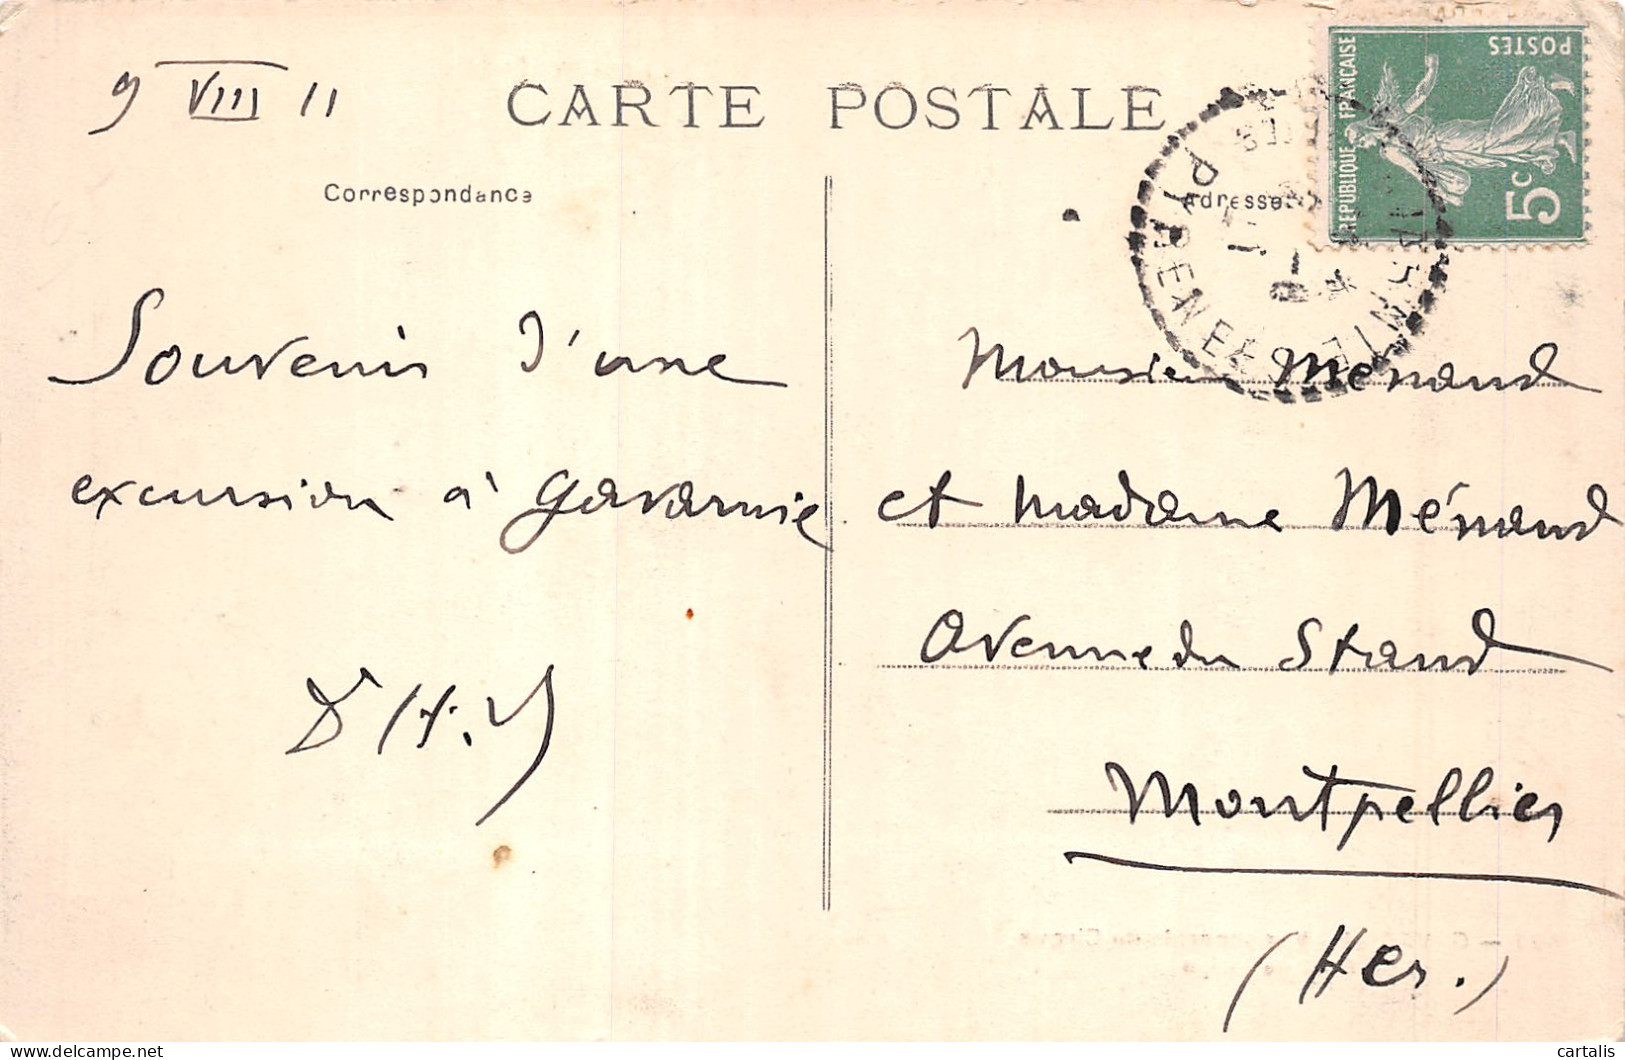 9 VIII 11
CARTE POSTALE
Correspondance
Adresse
REPUBLIQUE FRANÇAISE
POSTES
5c
PYRENEES
Souvenir d'une
excursion à Gavarnie.
Monsieur Menand
et Madame Ménand
Avenue du Stand
Montpellier
(Her.)
cartalis